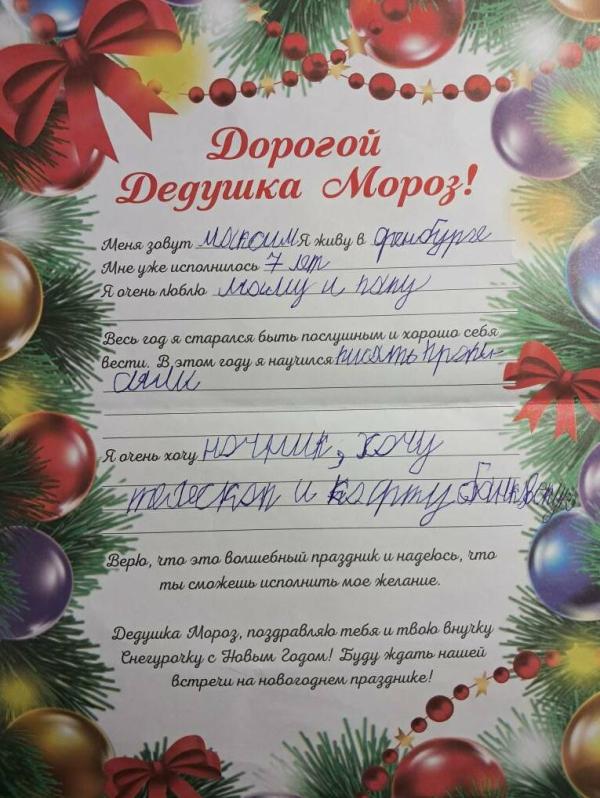 Дорогой
Дедушка Мороз!
Меня зовут максим Я живу в оренбурге
Мне уже исполнилось 7 лет
Я очень люблю маму и папу
Весь год я старался быть послушным и хорошо себя
вести. В этом году я научился писать пропи
сями
Я очень хочу ночник, хочу
телескоп и карту банковскую
Верю, что это волшебный праздник и надеюсь, что
ты сможешь исполнить мое желание.
Дедушка Мороз, поздравляю тебя и твою внучку
Снегурочку с Новым Годом! Буду ждать нашей
встречи на новогоднем празднике!